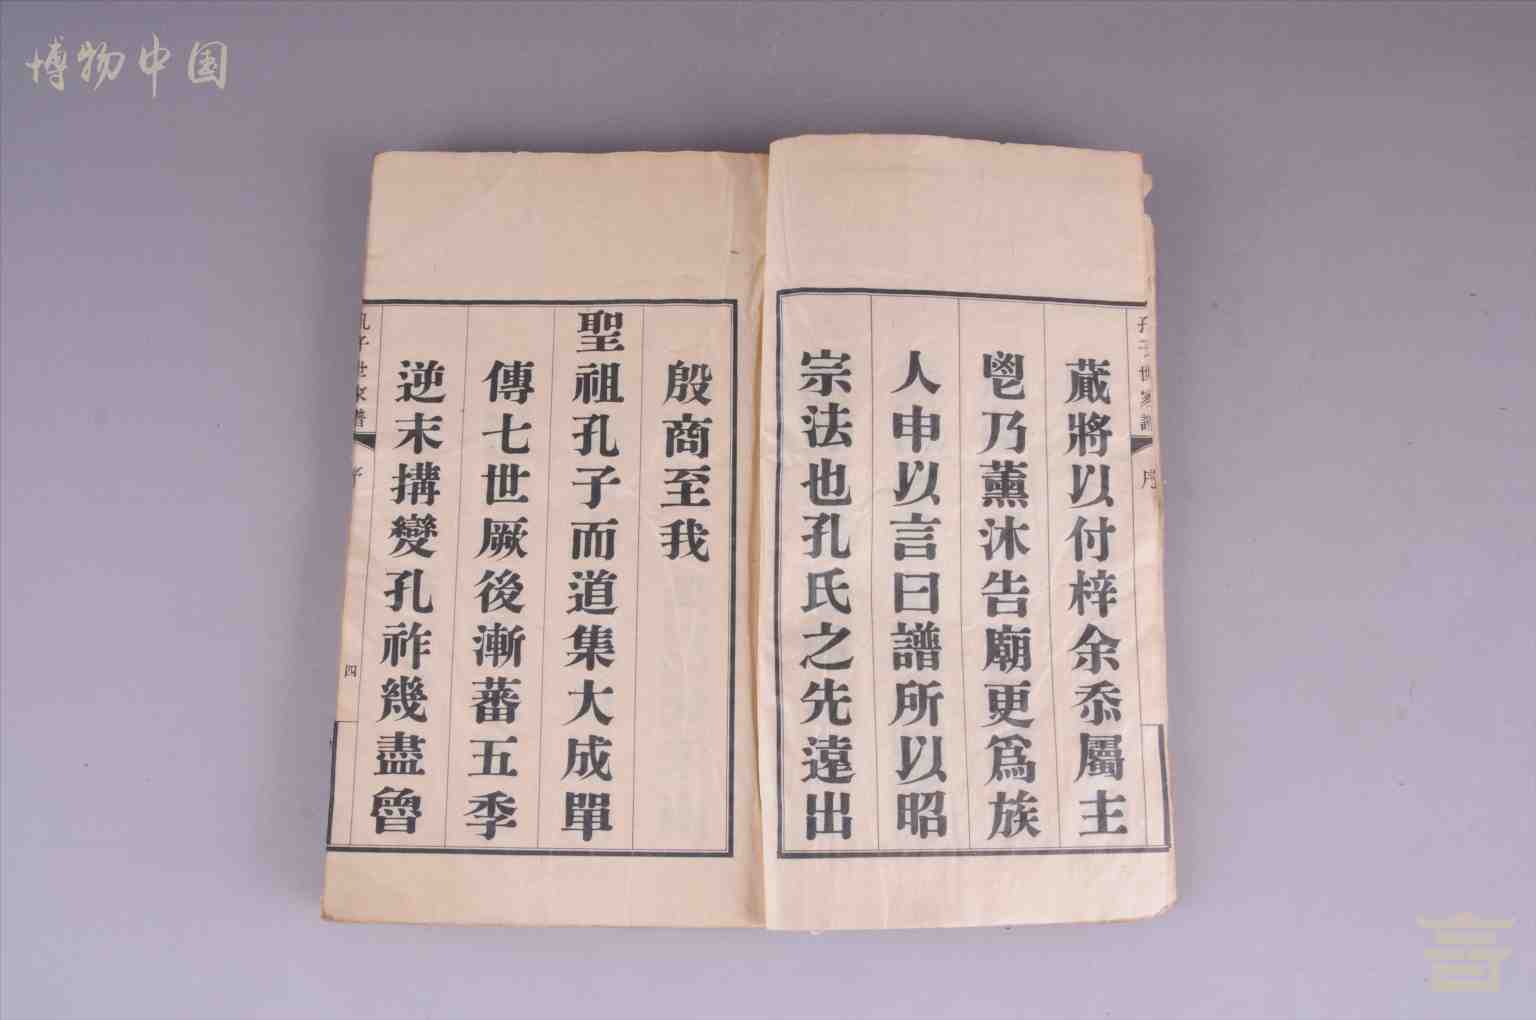 博物中国
孔子世家譜
序
蕆將以付梓余忝屬主
鬯乃薰沐告廟更爲族
人申以言曰譜所以昭
宗法也孔氏之先遠出
殷商至我
聖祖孔子而道集大成單
傳七世厥後漸蕃五季
逆末搆變孔祚幾盡曾
孔子世家譜
序
四